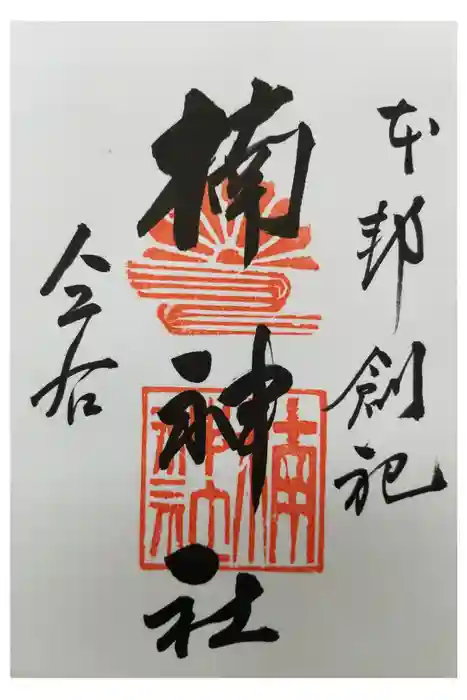 本邦創祀
楠神社
楠神社